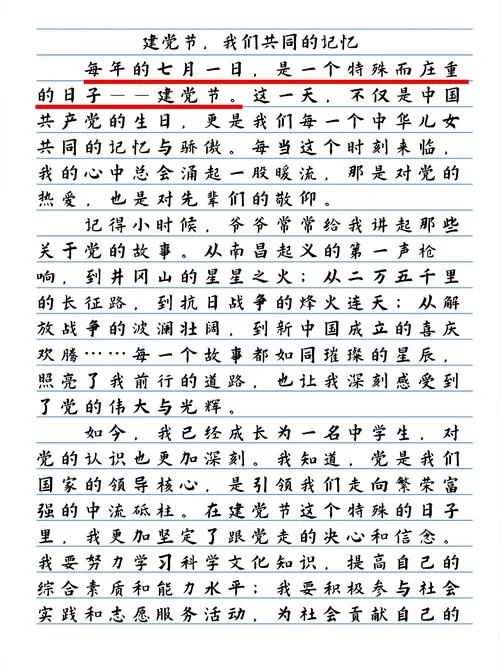 建党节，我们共同的记忆
每年的七月一日，是一个特殊而庄重
的日子——建党节。这一天，不仅是中国
共产党的生日，更是我们每一个中华儿女
共同的记忆与骄傲。每当这个时刻来临，
我的心中总会涌起一股暖流，那是对党的
热爱，也是对先辈们的敬仰。
记得小时候，爷爷常常给我讲起那些
关于党的故事。从南昌起义的第一声枪
响，到井冈山的星星之火；从二万五千里
的长征路，到抗日战争的烽火连天；从解
放战争的波澜壮阔，到新中国成立的喜庆
欢腾……每一个故事都如同璀璨的星辰，
照亮了我前行的道路，也让我深刻感受到
了党的伟大与光辉。
如今，我已经成长为一名中学生，对
党的认识也更加深刻。我知道，党是我们
国家的领导核心，是引领我们走向繁荣富
强的中流砥柱。在建党节这个特殊的日子
里，我更加坚定了跟党走的决心和信念。
我要努力学习科学文化知识，提高自己的
综合素质和能力水平；我要积极参与社会
实践和志愿服务活动，为社会贡献自己的